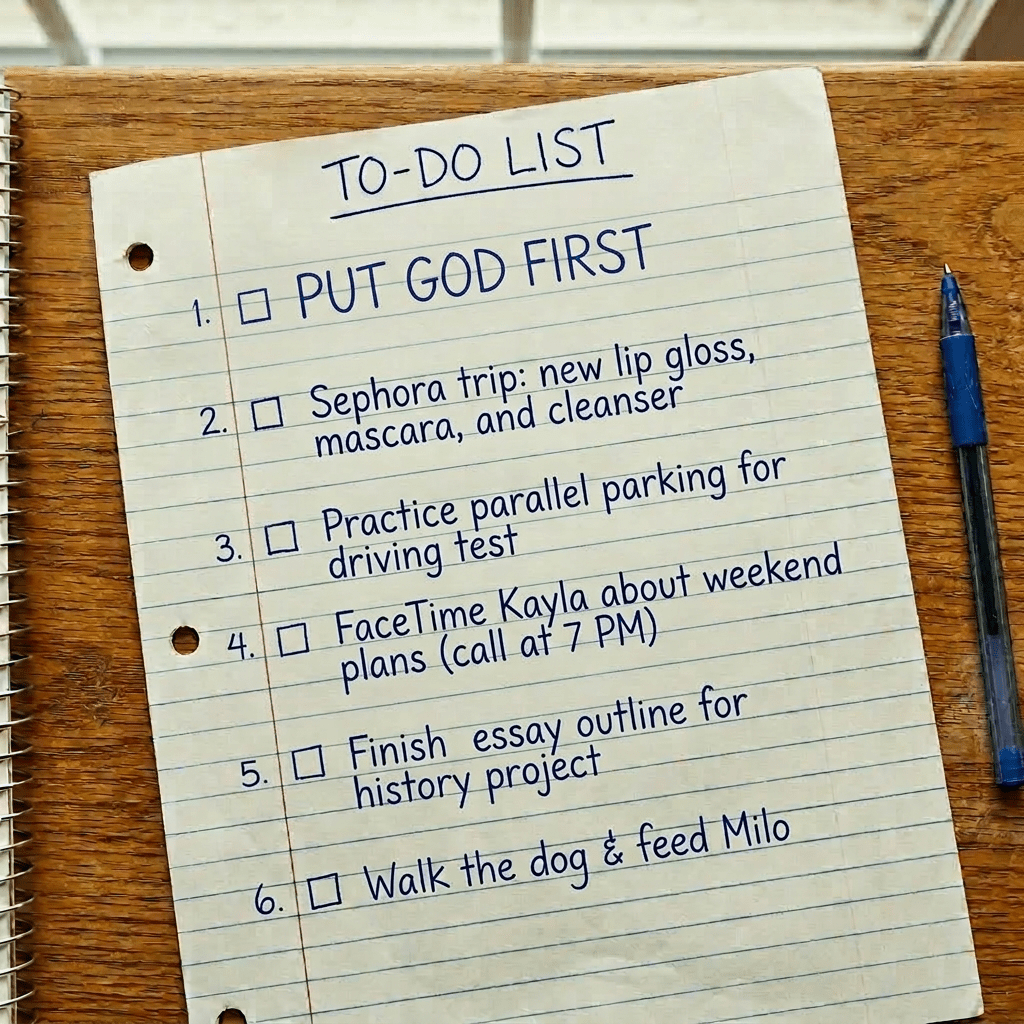 TO-DO LIST
1. ☐ PUT GOD FIRST
2. ☐ Sephora trip: new lip gloss,
mascara, and cleanser
3. ☐ Practice parallel parking for
driving test
4. ☐ FaceTime Kayla about weekend
plans (call at 7 PM)
5. ☐ Finish essay outline for
history project
6. ☐ Walk the dog & feed Milo